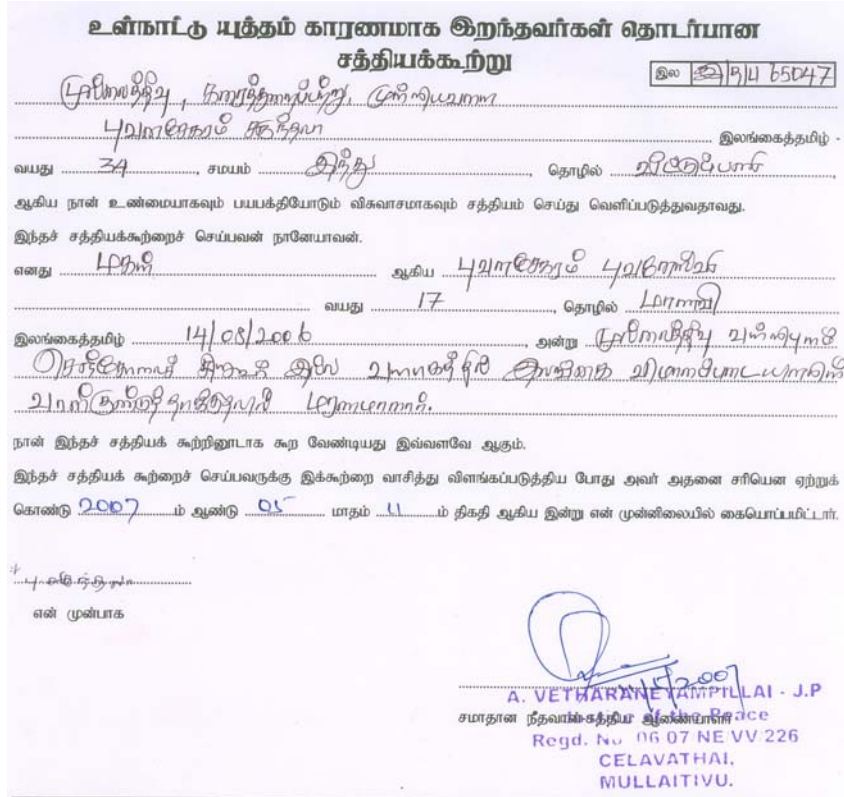 உள்நாட்டு யுத்தம் காரணமாக இறந்தவர்கள் தொடர்பான
சத்தியக்கூற்று
இல 65047
முல்லைத்தீவு, கரைத்துறைப்பற்று, முள்ளியவளை
புவனசேகரம் இலங்கைத்தமிழ் -
வயது 34, சமயம் இந்து, தொழில்
ஆகிய நான் உண்மையாகவும் பயபக்தியோடும் விசுவாசமாகவும் சத்தியம் செய்து வெளிப்படுத்துவதாவது.
இந்தச் சத்தியக்கூற்றைச் செய்பவன் நானேயாவன்.
எனது மகள் ஆகிய புவனசேகரம் புவனேஸ்வரி
வயது 17, தொழில் மாணவி
இலங்கைத்தமிழ் 14/08/2006, அன்று முல்லைத்தீவு வள்ளிபுனம்
செஞ்சோலைச் சிறுவர் இல்ல வளாகத்தில் இலங்கை விமானப்படையினரின்
வான் குண்டுத் தாக்குதலில் மரணமானார்.
நான் இந்தச் சத்தியக் கூற்றினூடாக கூற வேண்டியது இவ்வளவே ஆகும்.
இந்தச் சத்தியக் கூற்றைச் செய்பவருக்கு இக்கூற்றை வாசித்து விளங்கப்படுத்திய போது அவர் அதனை சரியென ஏற்றுக்
கொண்டு 2007 ம் ஆண்டு 05 மாதம் 11 ம் திகதி ஆகிய இன்று என் முன்னிலையில் கையொப்பமிட்டார்.
என் முன்பாக
A. VETHARANEYAMPILLAI - J.P
சமாதான நீதவான்/சத்திய ஆணையாளர்
Justice of the Peace
Regd. No 06 07 NE VV 226
CELAVATHAI,
MULLAITIVU.